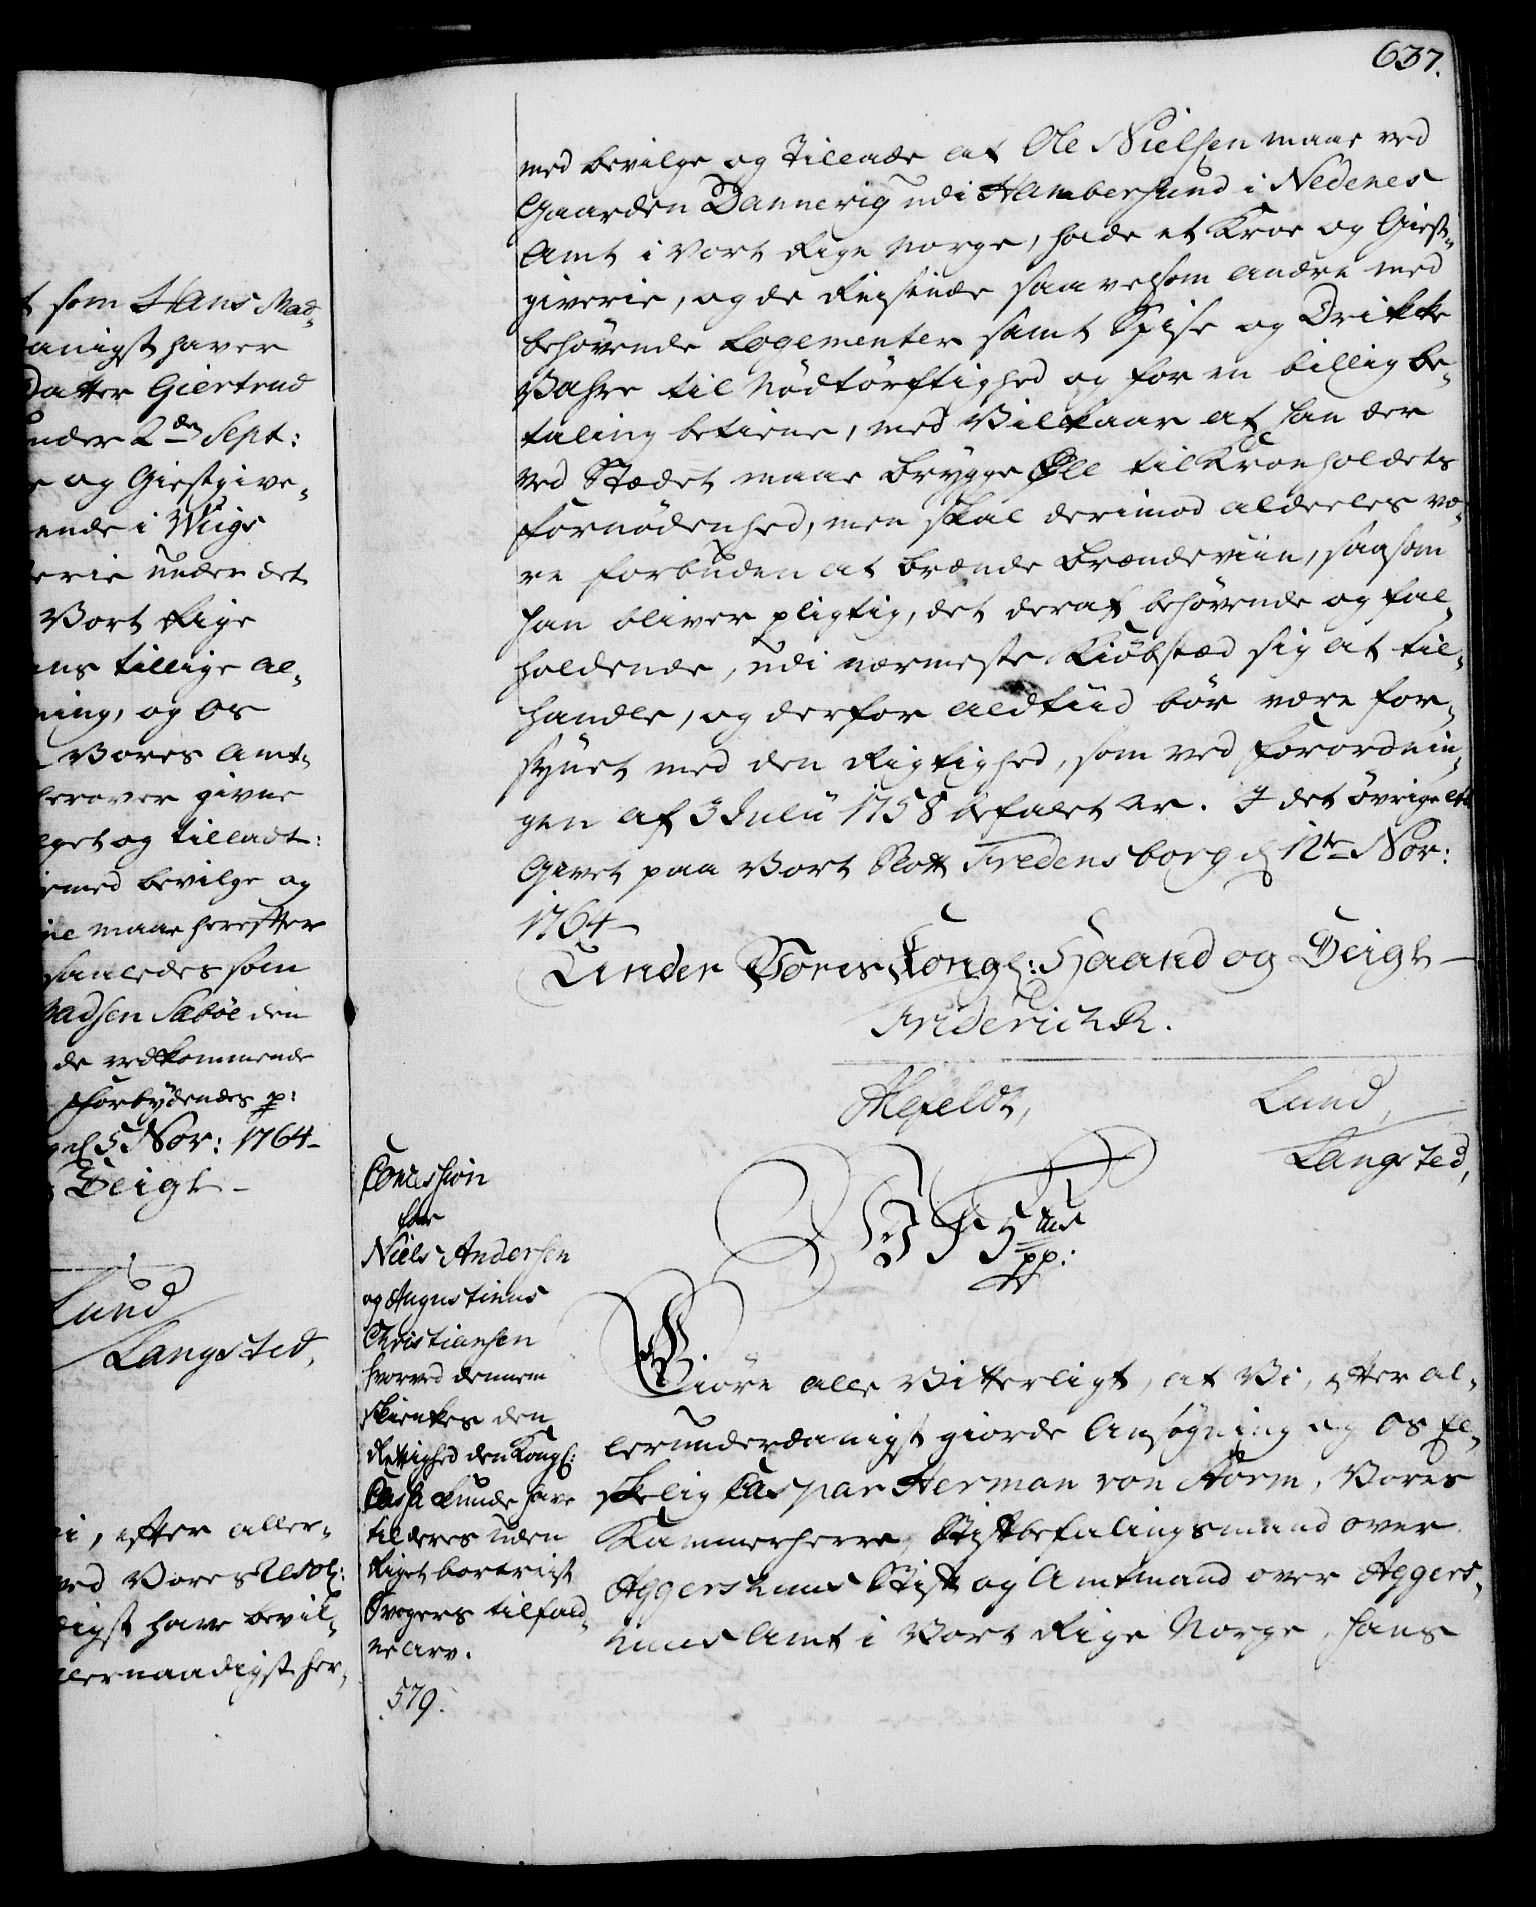 t som Hans Mad-
anigst haver
Datter Giertrud
under 2den Sept:
e og Giestgive-
ende i Wiigs
erie under det
Vort Rige
ens tillige al-
ning, og Os
Vores Amt-
herover givne
lget og tilladt:
emed bevilge og
ne maae herefter
saaledes som
Madsen Sæbøe den
de vedkommende
Forbydendes p:
5 Nov: 1764
Seigl
Lund
Langsted,
i, efter aller-
ved Vores Resol:
digst have bevil-
allernaadigst her-
637.
med bevilge og Tillade at Ole Nielsen maae ved
Gaarden Dannevig udi Hambersund i Nedenes
Amt i Vort Rige Norge, holde et Kroe og Giest-
giverie, og de Reisende saavelsom andre med
behøvende Logementer samt Spise og Drikke
Vahre til Nødtørftighed og for en billig be-
taling betiene, med Vilkaar at han der
ved Stædet maae brygge Øll til Kroeholdets
fornødenhed, men skal derimod aldeeles væ-
re forbuden at brænde Brændeviin, saasom
han bliver pligtig, det deraf behøvende og fal-
holdende, udi nærmeste Kiøbstæd sig at til-
handle, og derfor altiid bør være for-
synet med den Rigtighed, som ved Forordnin-
gen af 3 Julii 1758 befalet er. I det øvrige etc
Givet paa Vort Slott Fredensborg d 12te Nov:
1764
Under Vores Kongl: Haand og Seigl
Friderich R.
Ahlefeldt,
Lund,
Langsted,
Concession
for
Niels Andersen
og Augustinus
Christiansen
hvorved dennem
skienkes den
Rettighed den Kongl:
Cassa kunde have
til deres uden
Riget bortreist
Svogers tilfald-
ne Arv.
579.
W F 5tus
pp:
Giøre alle Vitterligt, at Vi, efter al-
lerunderdanigst giorde Ansøgning og Os El-
skelig Caspar Herman von Storm, Vores
Kammerherre, Stiftbefalingsmand over
Aggershuus Stift og Amtmand over Aggers-
huus Amt i Vort Rige Norge, hans